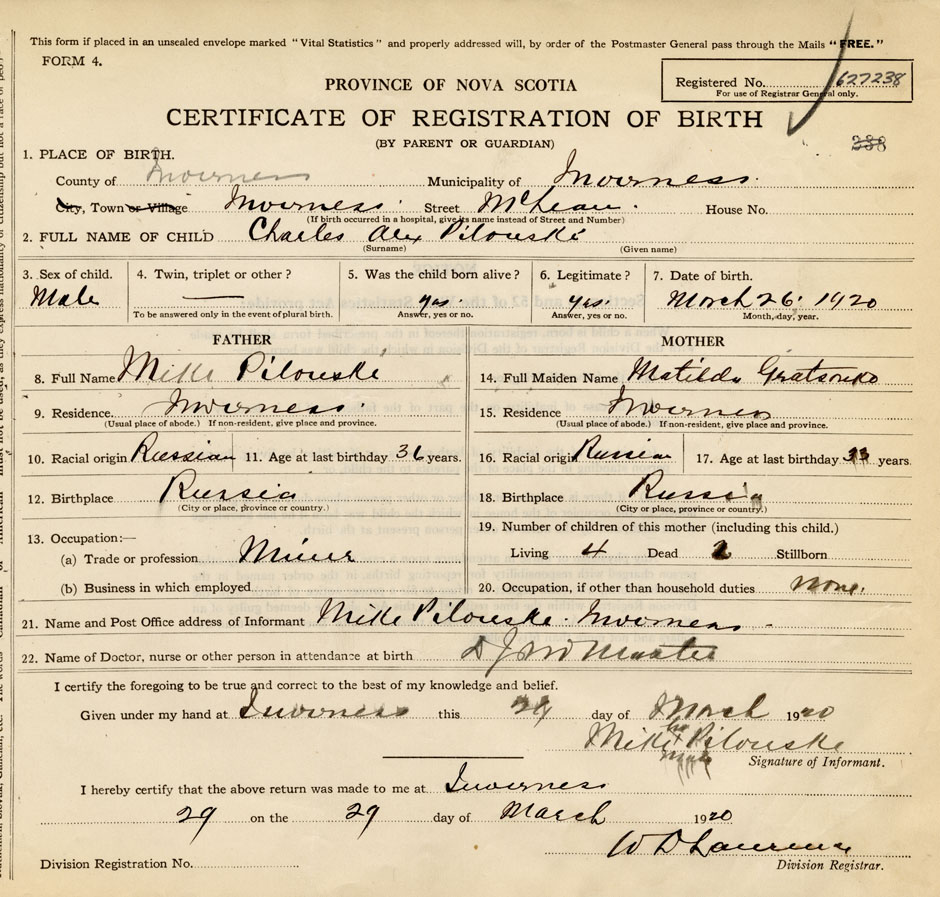 This form if placed in an unsealed envelope marked "Vital Statistics" and properly addressed will, by order of the Postmaster General pass through the Mails "FREE."
FORM 4.
Registered No. 627238
For use of Registrar General only.
PROVINCE OF NOVA SCOTIA
CERTIFICATE OF REGISTRATION OF BIRTH
(BY PARENT OR GUARDIAN)
288
1. PLACE OF BIRTH.
County of Inverness Municipality of Inverness.
City, Town or Village Inverness. Street McLean. House No.
(If birth occurred in a hospital, give its name instead of Street and Number)
2. FULL NAME OF CHILD Charles Alex Pilouski
(Surname) (Given name)
3. Sex of child. 4. Twin, triplet or other? 5. Was the child born alive? 6. Legitimate? 7. Date of birth.
Male — yes. yes. March 26. 1920
To be answered only in the event of plural birth. Answer, yes or no. Answer, yes or no. Month, day, year.
FATHER MOTHER
8. Full Name Mike Pilouski 14. Full Maiden Name Matilda
9. Residence. Inverness. 15. Residence Inverness
(Usual place of abode.) If non-resident, give place and province. (Usual place of abode.) If non-resident, give place and province.
10. Racial origin Russian 11. Age at last birthday 36 years. 16. Racial origin Russian 17. Age at last birthday 33 years.
12. Birthplace Russia 18. Birthplace Russia
(City or place, province or country.) (City or place, province or country.)
13. Occupation:— 19. Number of children of this mother (including this child.)
(a) Trade or profession Miner Living 4 Dead 2 Stillborn
(b) Business in which employed 20. Occupation, if other than household duties none.
21. Name and Post Office address of Informant Mike Pilouske. Inverness -
22. Name of Doctor, nurse or other person in attendance at birth
I certify the foregoing to be true and correct to the best of my knowledge and belief.
Given under my hand at Inverness this 29 day of March 1920
Mike his Pilouske
mark
Signature of Informant.
I hereby certify that the above return was made to me at Inverness
29 on the 29 day of March 1920
W D Lawrence
Division Registration No. Division Registrar.